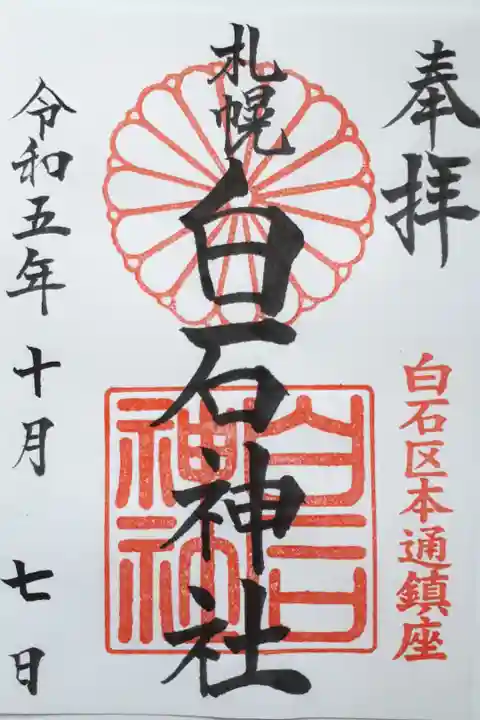 奉拝
白石区本通鎮座
札幌
白石神社
白石神社
令和五年十月七日